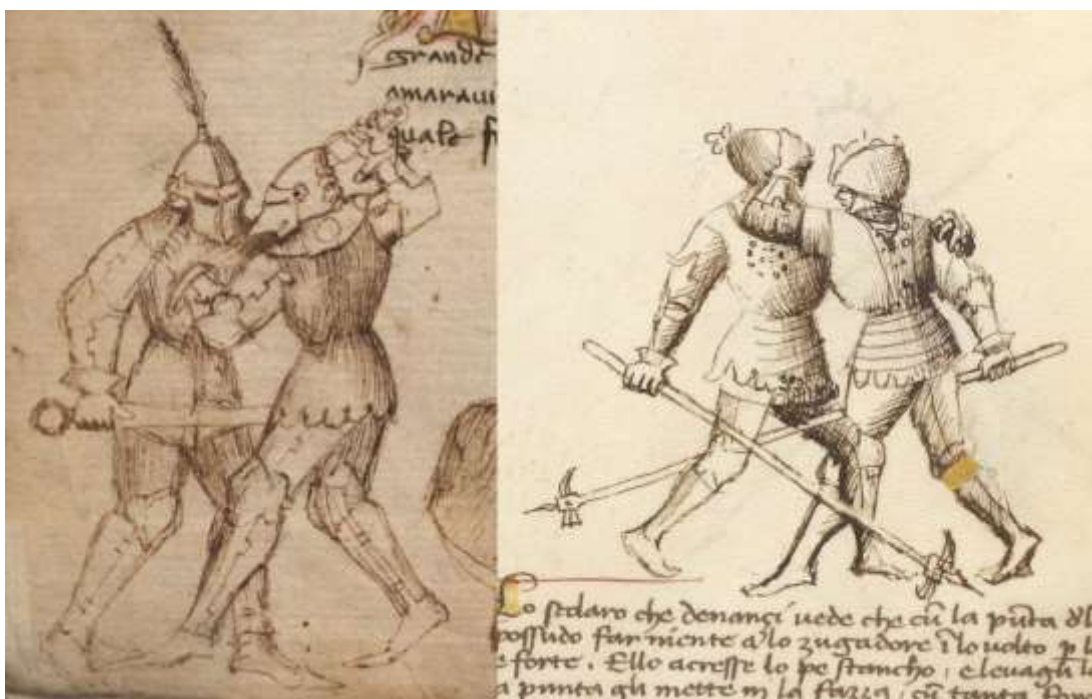 grande
amaraui
quale f
Lo scolaro che denançi uede che cũ la pũta dl
possudo far niente a lo zugadore ĩ lo uolto p l
e forte. Ello acresse lo pe stancho, e leuagli
a punta gli mette in la